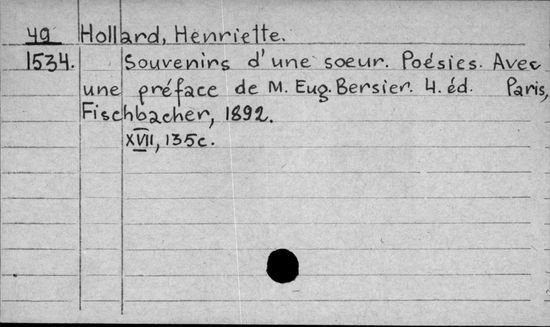 49 Hollard, Henriette.
1534. Souvenirs d'une soeur. Poésies. Avec
une préface de M. Eug. Bersier. 4. éd. Paris,
Fischbacher, 1892.
XVII, 135c.